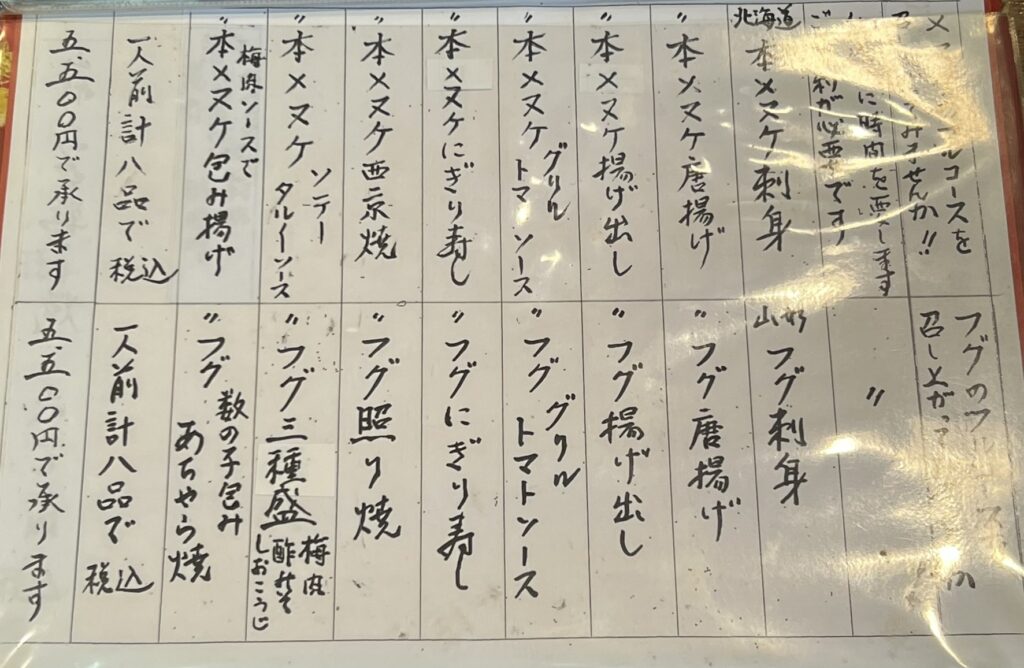 コースを
みませんか!!
に時間を要します
が必要です
北海道 本メヌケ刺身
〃 本メヌケ唐揚げ
〃 本メヌケ揚げ出し
〃 本メヌケ グリル
トマ ソース
〃 本メヌケにぎり寿し
〃 本メヌケ西京焼
〃 本メヌケ ソテー
タルイーソース
梅肉ソースで
〃 本メヌケ包み揚げ
一人前計八品で 税込
五、五〇〇円で承ります
フグのフル
召し上がって
〃
山形 フグ刺身
〃 フグ唐揚げ
〃 フグ揚げ出し
〃 フグ グリル
トマトソース
〃 フグにぎり寿し
〃 フグ照り焼
〃 フグ三種盛 梅肉
酢みそ
しおこうじ
〃 フグ 数の子包み
あちゃら焼
一人前計八品で 税込
五、五〇〇円で承ります